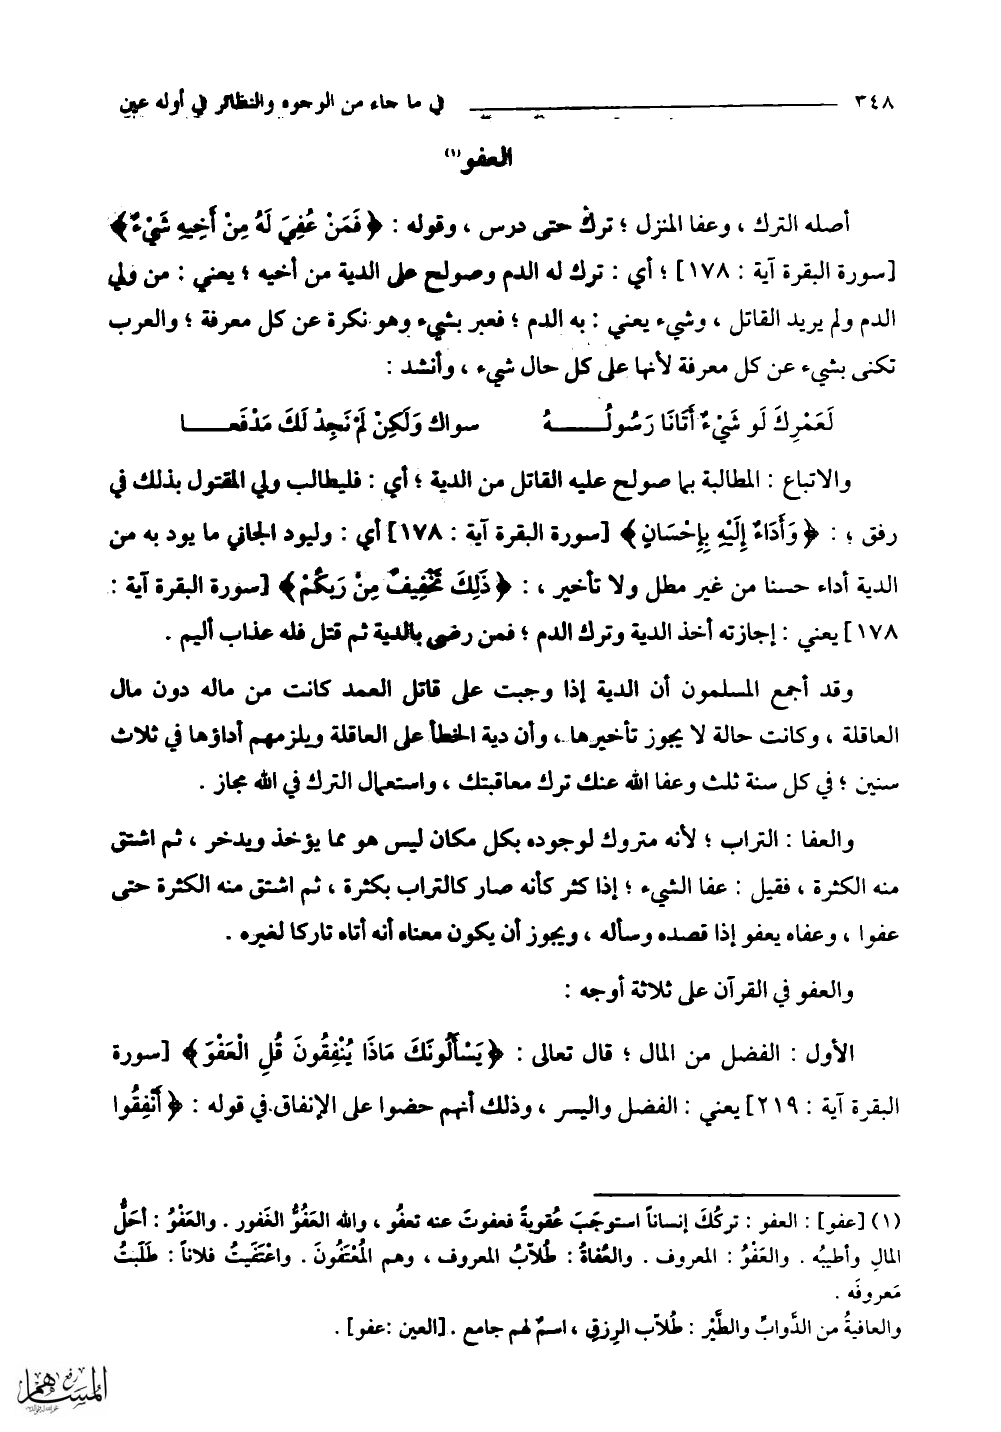 ٣٤٨ في ما جاء من الوجوه والنظائر في أوله عين
العفو (١)
أصله الترك ، وعفا المنزل ؛ ترك حتى درس ، وقوله : ﴿ فَمَنْ عُفِيَ لَهُ مِنْ أَخِيهِ شَيْءٌ ﴾
[سورة البقرة آية : ١٧٨] ؛ أي : ترك له الدم وصولح على الدية من أخيه ؛ يعني : من ولي
الدم ولم يريد القاتل ، وشيء يعني : به الدم ؛ فعبر بشيء وهو نكرة عن كل معرفة ؛ والعرب
تكنى بشيء عن كل معرفة لأنها على كل حال شيء ، وأنشد :
لَعَمْرِكَ لَو شَيْءٌ أَتَانَا رَسُولُـــــهُ سواك وَلَكِنْ لَمْ نَجِدْ لَكَ مَدْفَعـــــا
والاتباع : المطالبة بما صولح عليه القاتل من الدية ؛ أي : فليطالب ولي المقتول بذلك في
رفق ؛ : ﴿ وَأَدَاءٌ إِلَيْهِ بِإِحْسَانٍ ﴾ [سورة البقرة آية : ١٧٨] أي : وليود الجاني ما يود به من
الدية أداء حسنا من غير مطل ولا تأخير ، : ﴿ ذَلِكَ تَخْفِيفٌ مِنْ رَبِّكُمْ ﴾ [سورة البقرة آية :
١٧٨] يعني : إجازته أخذ الدية وترك الدم ؛ فمن رضى بالدية ثم قتل فله عذاب أليم .
وقد أجمع المسلمون أن الدية إذا وجبت على قاتل العمد كانت من ماله دون مال
العاقلة ، وكانت حالة لا يجوز تأخيرها ، وأن دية الخطأ على العاقلة ويلزمهم أداؤها في ثلاث
سنين ؛ في كل سنة ثلث وعفا الله عنك ترك معاقبتك ، واستعمال الترك في الله مجاز .
والعفا : التراب ؛ لأنه متروك لوجوده بكل مكان ليس هو مما يؤخذ ويدخر ، ثم اشتق
منه الكثرة ، فقيل : عفا الشيء ؛ إذا كثر كأنه صار كالتراب بكثرة ، ثم اشتق منه الكثرة حتى
عفوا ، وعفاه يعفو إذا قصده وسأله ، ويجوز أن يكون معناه أنه أتاه تاركا لغيره .
والعفو في القرآن على ثلاثة أوجه :
الأول : الفضل من المال ؛ قال تعالى : ﴿ يَسْأَلُونَكَ مَاذَا يُنْفِقُونَ قُلِ الْعَفْوَ ﴾ [سورة
البقرة آية : ٢١٩] يعني : الفضل واليسر ، وذلك أنهم حضوا على الإنفاق في قوله : ﴿ أَنْفِقُوا
(١) [عفو] : العفو : تركُكَ إنساناً استوجَبَ عُقوبةً فعفوتَ عنه تعفُو ، والله العَفُوُّ الغَفور . والعَفْوُ : أحَلُّ
المالِ وأطيبُه . والعَفْوُ : المعروف . والعُفاةُ : طُلاّبُ المعروف ، وهم المُعْتَفُونَ . واعْتَفَيتُ فلاناً : طَلَبتُ
مَعروفَه .
والعافيةُ من الدَّوابِّ والطَّيْر : طُلاّب الرِزقِ ، اسمٌ لهم جامع . [العين :عفو] .